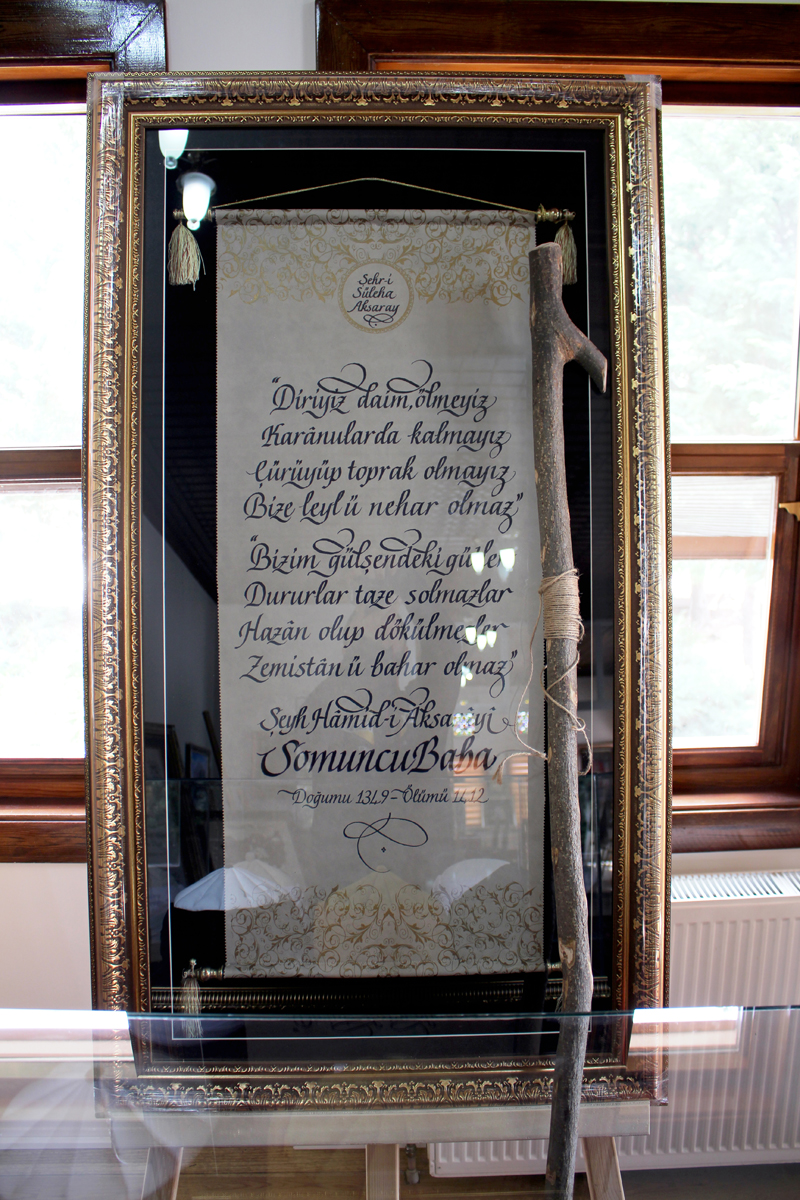 Şehr-i
Süleha
Aksaray
"Diriyiz daim, ölmeyiz
Karânularda kalmayız
Çürüyüp toprak olmayız
Bize leyl ü nehar olmaz"
"Bizim gülşendeki güller
Dururlar taze solmazlar
Hazân olup dökülmezler
Zemistân ü bahar olmaz"
Şeyh Hâmid-i Aksarâyi
Somuncu Baba
Doğumu 1349 - Ölümü 1412